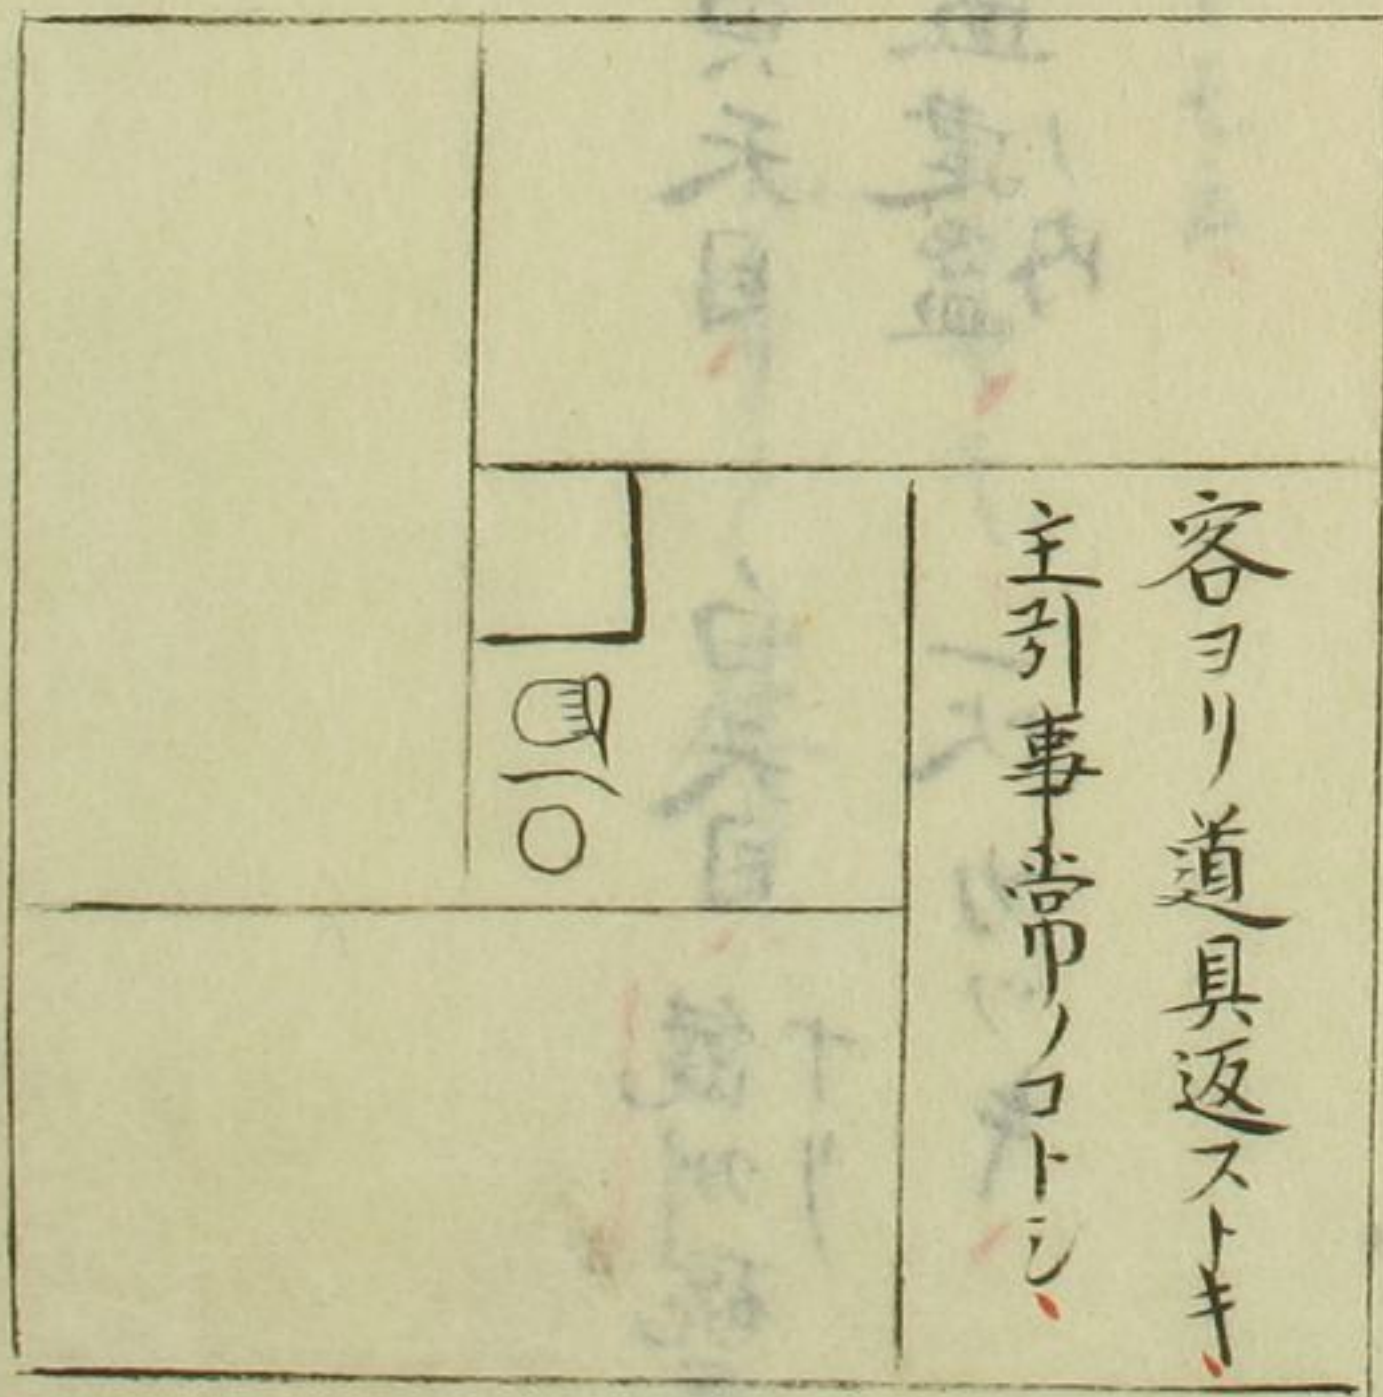 客ヨリ道具返ストキ、
主引事常ノコトシ、